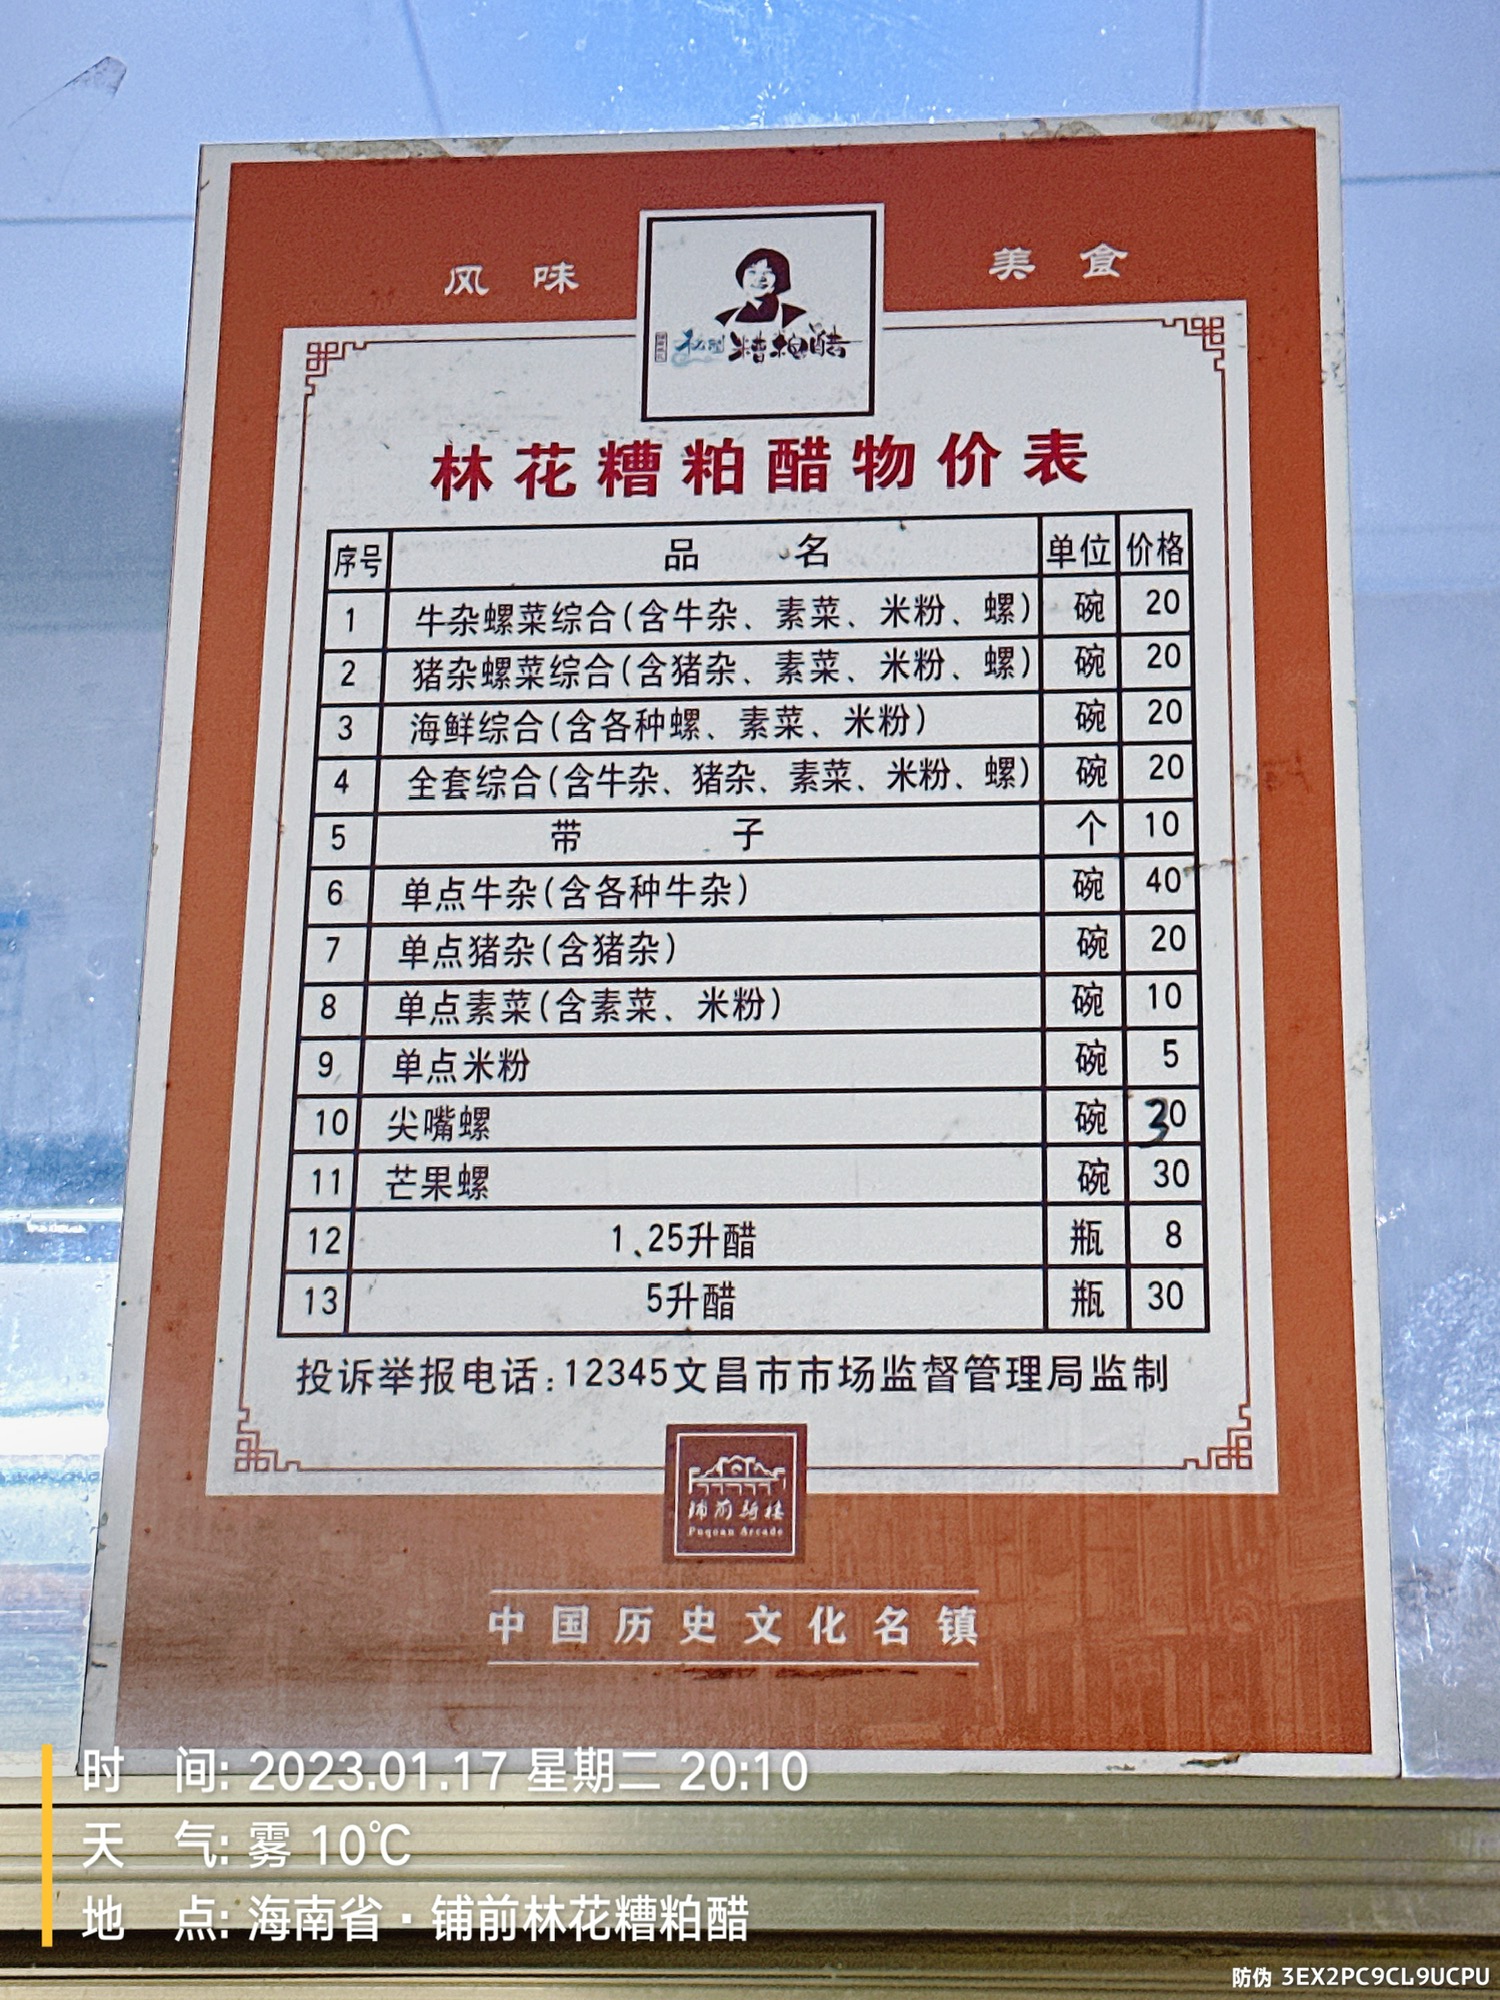 风味 美食
糟粕醋
林花糟粕醋物价表
序号 品名 单位 价格
1 牛杂螺菜综合(含牛杂、素菜、米粉、螺) 碗 20
2 猪杂螺菜综合(含猪杂、素菜、米粉、螺) 碗 20
3 海鲜综合(含各种螺、素菜、米粉) 碗 20
4 全套综合(含牛杂、猪杂、素菜、米粉、螺) 碗 20
5 带子 个 10
6 单点牛杂(含各种牛杂) 碗 40
7 单点猪杂(含猪杂) 碗 20
8 单点素菜(含素菜、米粉) 碗 10
9 单点米粉 碗 5
10 尖嘴螺 碗 30
11 芒果螺 碗 30
12 1、25升醋 瓶 8
13 5升醋 瓶 30
投诉举报电话:12345文昌市市场监督管理局监制
铺前骑楼
Puqian Arcade
中国历史文化名镇
时间: 2023.01.17 星期二 20:10
天气: 雾 10℃
地点: 海南省·铺前林花糟粕醋
防伪 3EX2PC9CL9UCPU